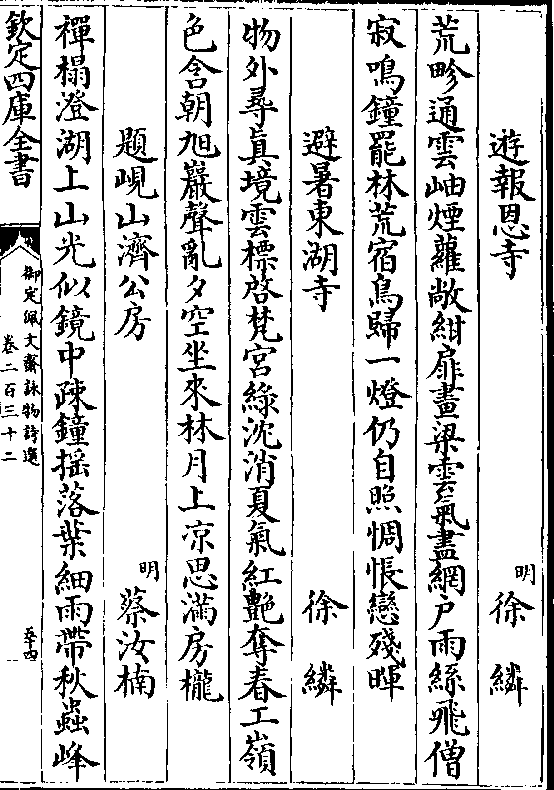 遊報恩寺　明　徐　繗
荒畛通雲岫煙蘿敞紺扉畫梁雲氣盡網户雨絲飛僧
寂鳴鐘罷林荒宿鳥歸一燈仍自照惆悵戀殘暉
避暑東湖寺　徐　繗
物外尋真境雲標啓梵宫綠沈消夏氣紅艷奪春工嶺
色含朝旭巖聲亂夕空坐來林月上凉思滿房櫳
題峴山濟公房　明　蔡汝楠
禪榻澄湖上山光似鏡中疎鐘摇落葉細雨帶秋蟲峰
欽定四庫全書
御定佩文齋詠物詩選
卷二百三十二
五十四